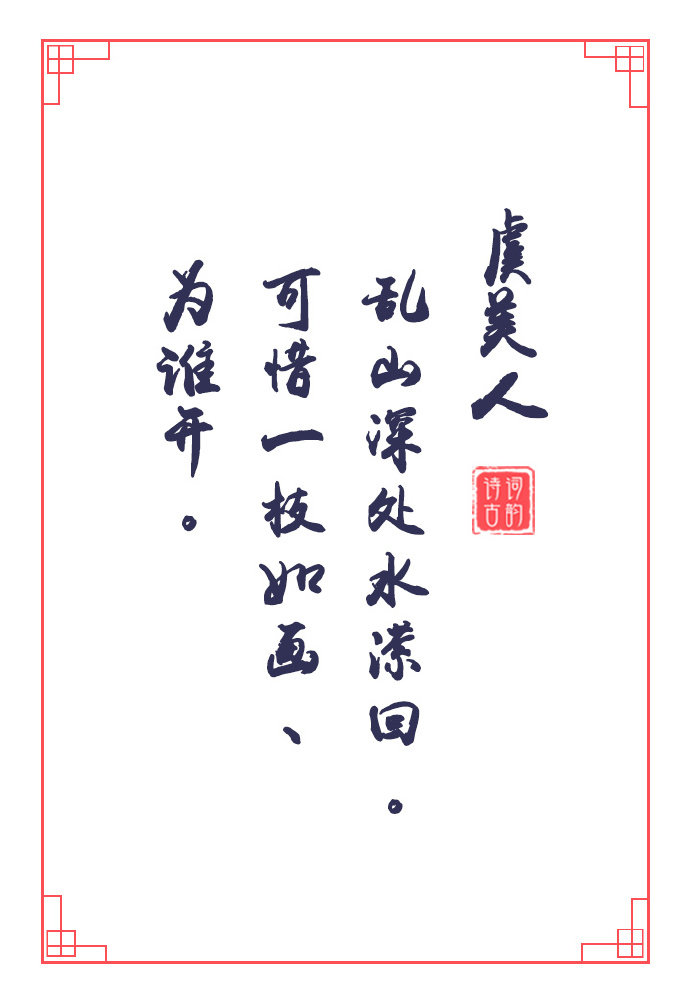 虞美人
诗词
古韵
乱山深处水潆回。
可惜一枝如画、
为谁开。